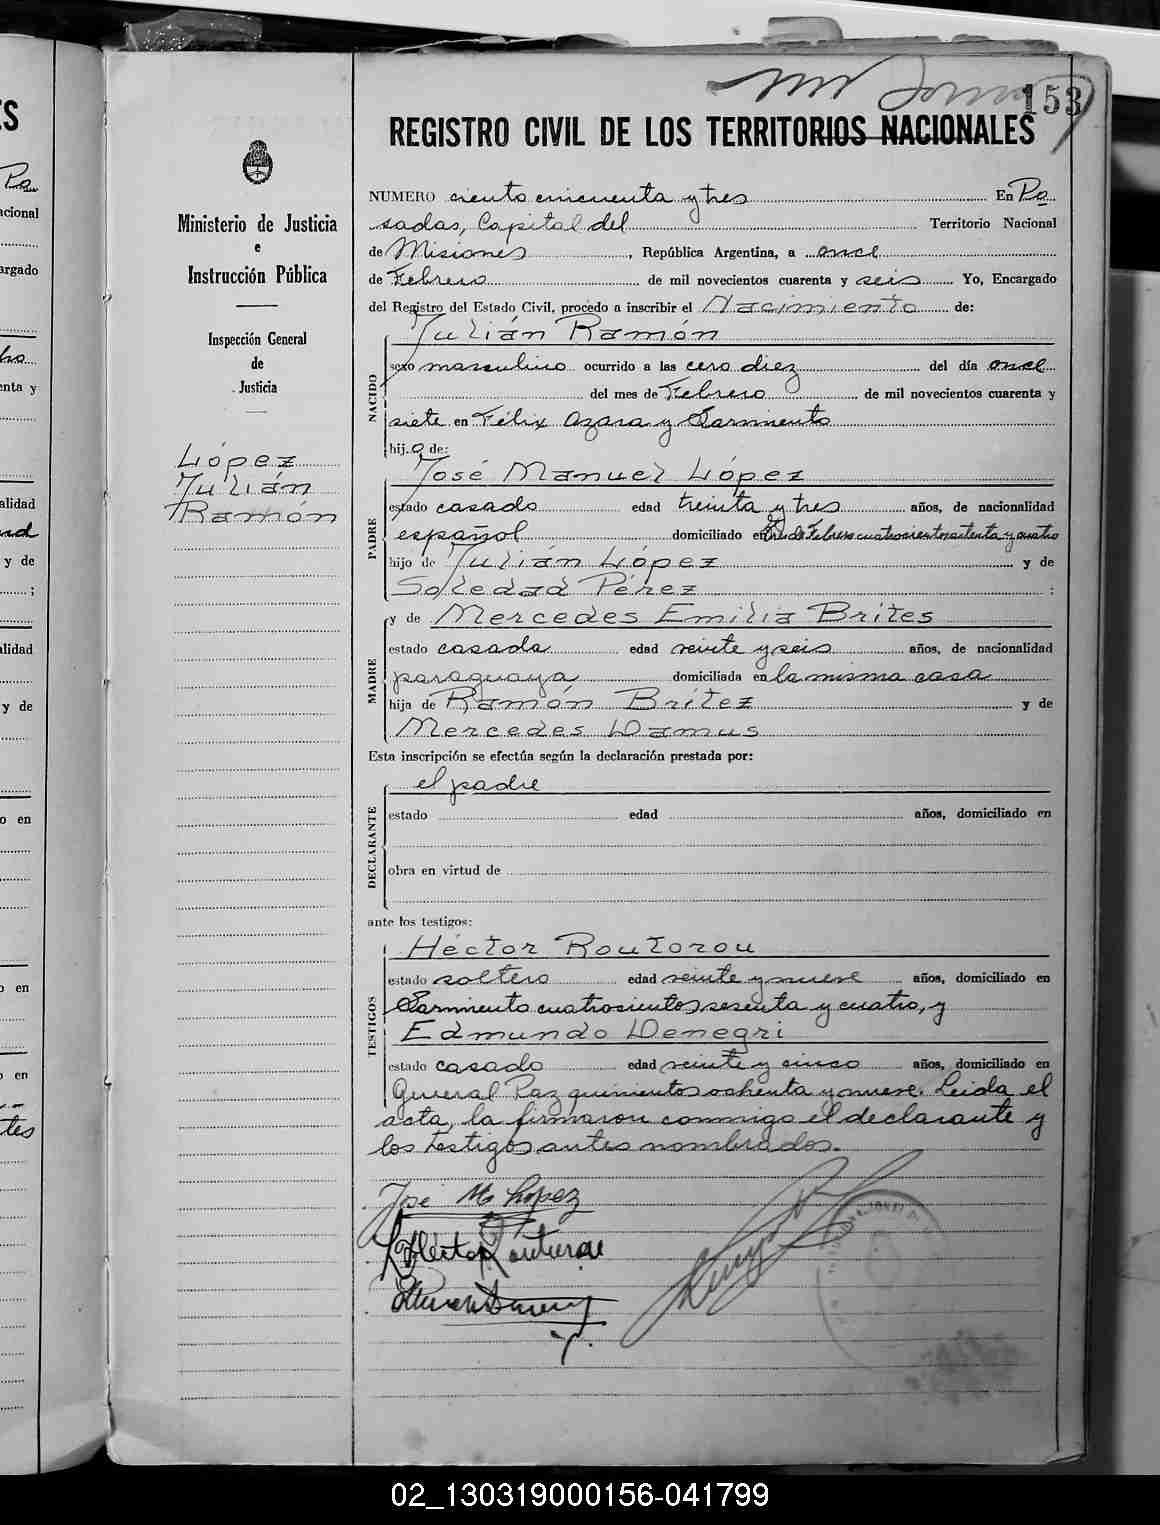 153
REGISTRO CIVIL DE LOS TERRITORIOS NACIONALES
Ministerio de Justicia
e
Instrucción Pública
Inspección General
de
Justicia
López
Julián
Ramón
NUMERO ciento cincuenta y tres En Po
sadas, Capital del Territorio Nacional
de Misiones, República Argentina, a once
de Febrero de mil novecientos cuarenta y seis Yo, Encargado
del Registro del Estado Civil, procedo a inscribir el Nacimiento de:
NACIDO
Julián Ramón
sexo masculino ocurrido a las cero diez del día once
del mes de Febrero de mil novecientos cuarenta y
siete en Félix Azara y Sarmiento
hijo de:
PADRE
José Manuel López
estado casado edad treinta y tres años, de nacionalidad
español domiciliado en Tres de Febrero cuatrocientos setenta y cuatro
hijo de Julián López y de
Soledad Pérez ;
MADRE
y de Mercedes Emilia Brites
estado casada edad veinte y seis años, de nacionalidad
paraguaya domiciliada en la misma casa
hija de Ramón Brítez y de
Mercedes Damus
Esta inscripción se efectúa según la declaración prestada por:
DECLARANTE
el padre
estado edad años, domiciliado en
obra en virtud de
ante los testigos:
TESTIGOS
Héctor Routorou
estado soltero edad veinte y nueve años, domiciliado en
Sarmiento cuatrocientos sesenta y cuatro, y
Edmundo Denegri
estado casado edad veinte y cinco años, domiciliado en
General Paz quinientos ochenta y nueve. Leida el
acta, la firmaron conmigo el declarante y
los testigos antes nombrados.
José M. Lopez
Héctor
02_130319000156-041799